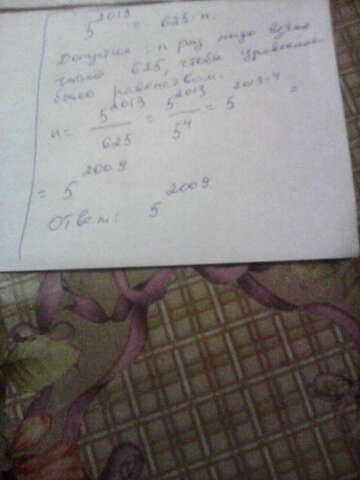 5^2013 = 625·n.
Допустим n раз надо взять
число 625, чтобы уравнение
было равенством.
n = 5^2013 / 625 = 5^2013 / 5^4 = 5^2013-4 =
= 5^2009
Ответ: 5^2009